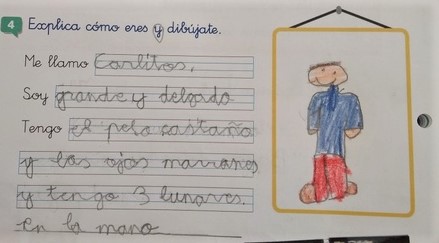 4 Explica cómo eres y dibújate.
Me llamo Carlitos.
Soy grande y delgado
Tengo el pelo castaño
y los ojos marrones
y tengo 3 lunares.
en la mano